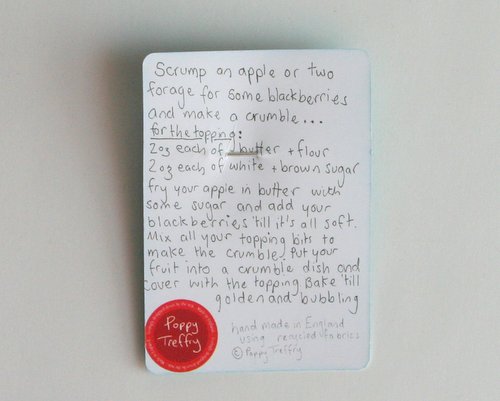 Scrump an apple or two
forage for some blackberries
and make a crumble...
for the topping:
2oz each of butter + flour
2oz each of white + brown sugar
fry your apple in butter with
some sugar and add your
blackberries 'till it's all soft.
Mix all your topping bits to
make the crumble. Put your
fruit into a crumble dish and
cover with the topping. Bake 'till
golden and bubbling
Poppy
Treffry
hand made in England
using recycled fabrics
© Poppy Treffry